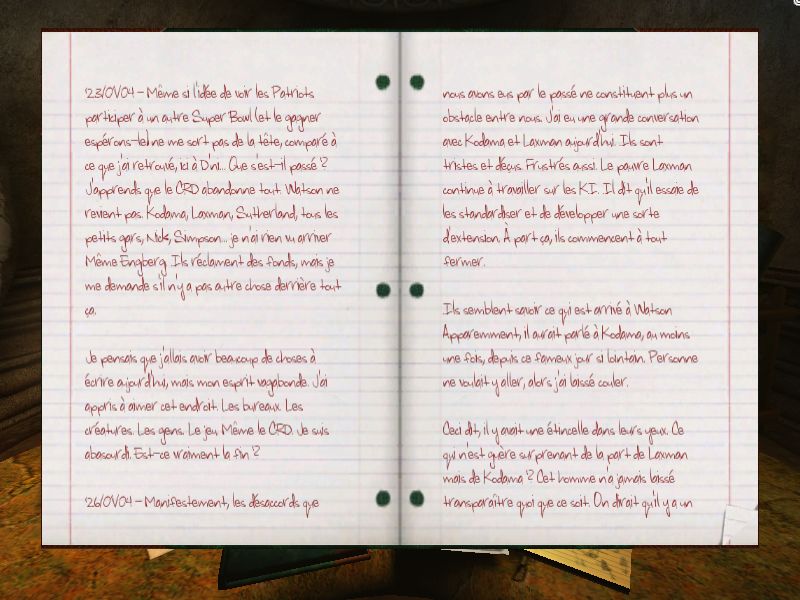 23/01/04 – Même si l'idée de voir les Patriots
participer à un autre Super Bowl (et le gagner
espérons-le) ne me sort pas de la tête, comparé à
ce que j'ai retrouvé, ici à D'ni... Que s'est-il passé ?
J'apprends que le CRD abandonne tout. Watson ne
revient pas. Kodama, Laxman, Sutherland, tous les
petits gars, Nick, Simpson... je n'ai rien vu arriver
Même Engberg. Ils réclament des fonds, mais je
me demande s'il n'y a pas autre chose derrière tout
ça.
Je pensais que j'allais avoir beaucoup de choses à
écrire aujourd'hui, mais mon esprit vagabonde. J'ai
appris à aimer cet endroit. Les bureaux. Les
créatures. Les gens. Le jeu. Même le CRD. Je suis
abasourdi. Est-ce vraiment la fin ?
26/01/04 – Manifestement, les désaccords que
nous avons eus par le passé ne constituent plus un
obstacle entre nous. J'ai eu une grande conversation
avec Kodama et Laxman aujourd'hui. Ils sont
tristes et déçus. Frustrés aussi. Le pauvre Laxman
continue à travailler sur les KI. Il dit qu'il essaie de
les standardiser et de développer une sorte
d'extension. À part ça, ils commencent à tout
fermer.
Ils semblent savoir ce qui est arrivé à Watson
Apparemment, il aurait parlé à Kodama, au moins
une fois, depuis ce fameux jour si lointain. Personne
ne voulait y aller, alors j'ai laissé couler.
Ceci dit, il y avait une étincelle dans leurs yeux. Ce
qui n'est guère surprenant de la part de Laxman
mais de Kodama ? Cet homme n'a jamais laissé
transparaître quoi que ce soit. On dirait qu'il y a un